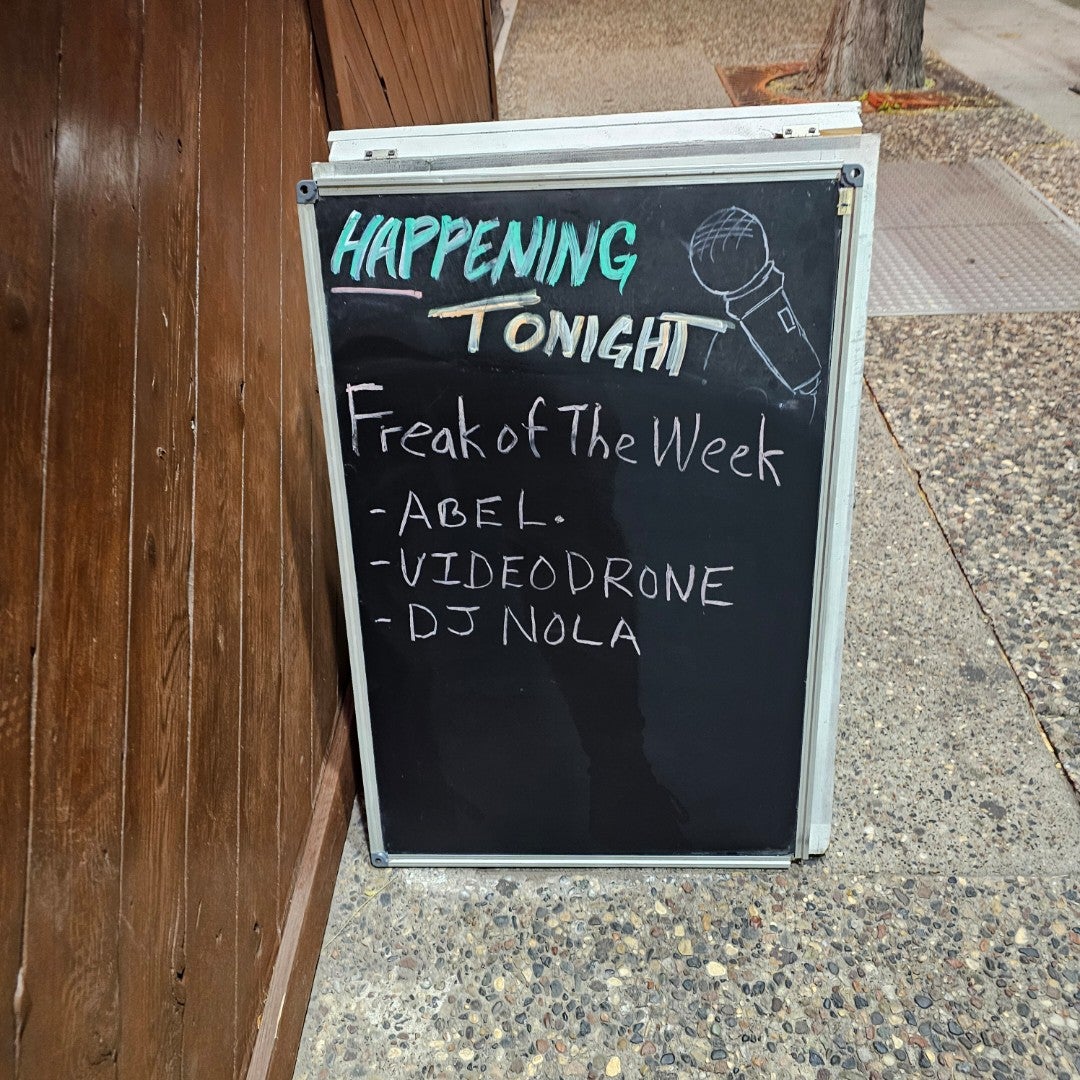 HAPPENING
TONIGHT
Freak of The Week
- ABEL.
- VIDEODRONE
- DJ NOLA